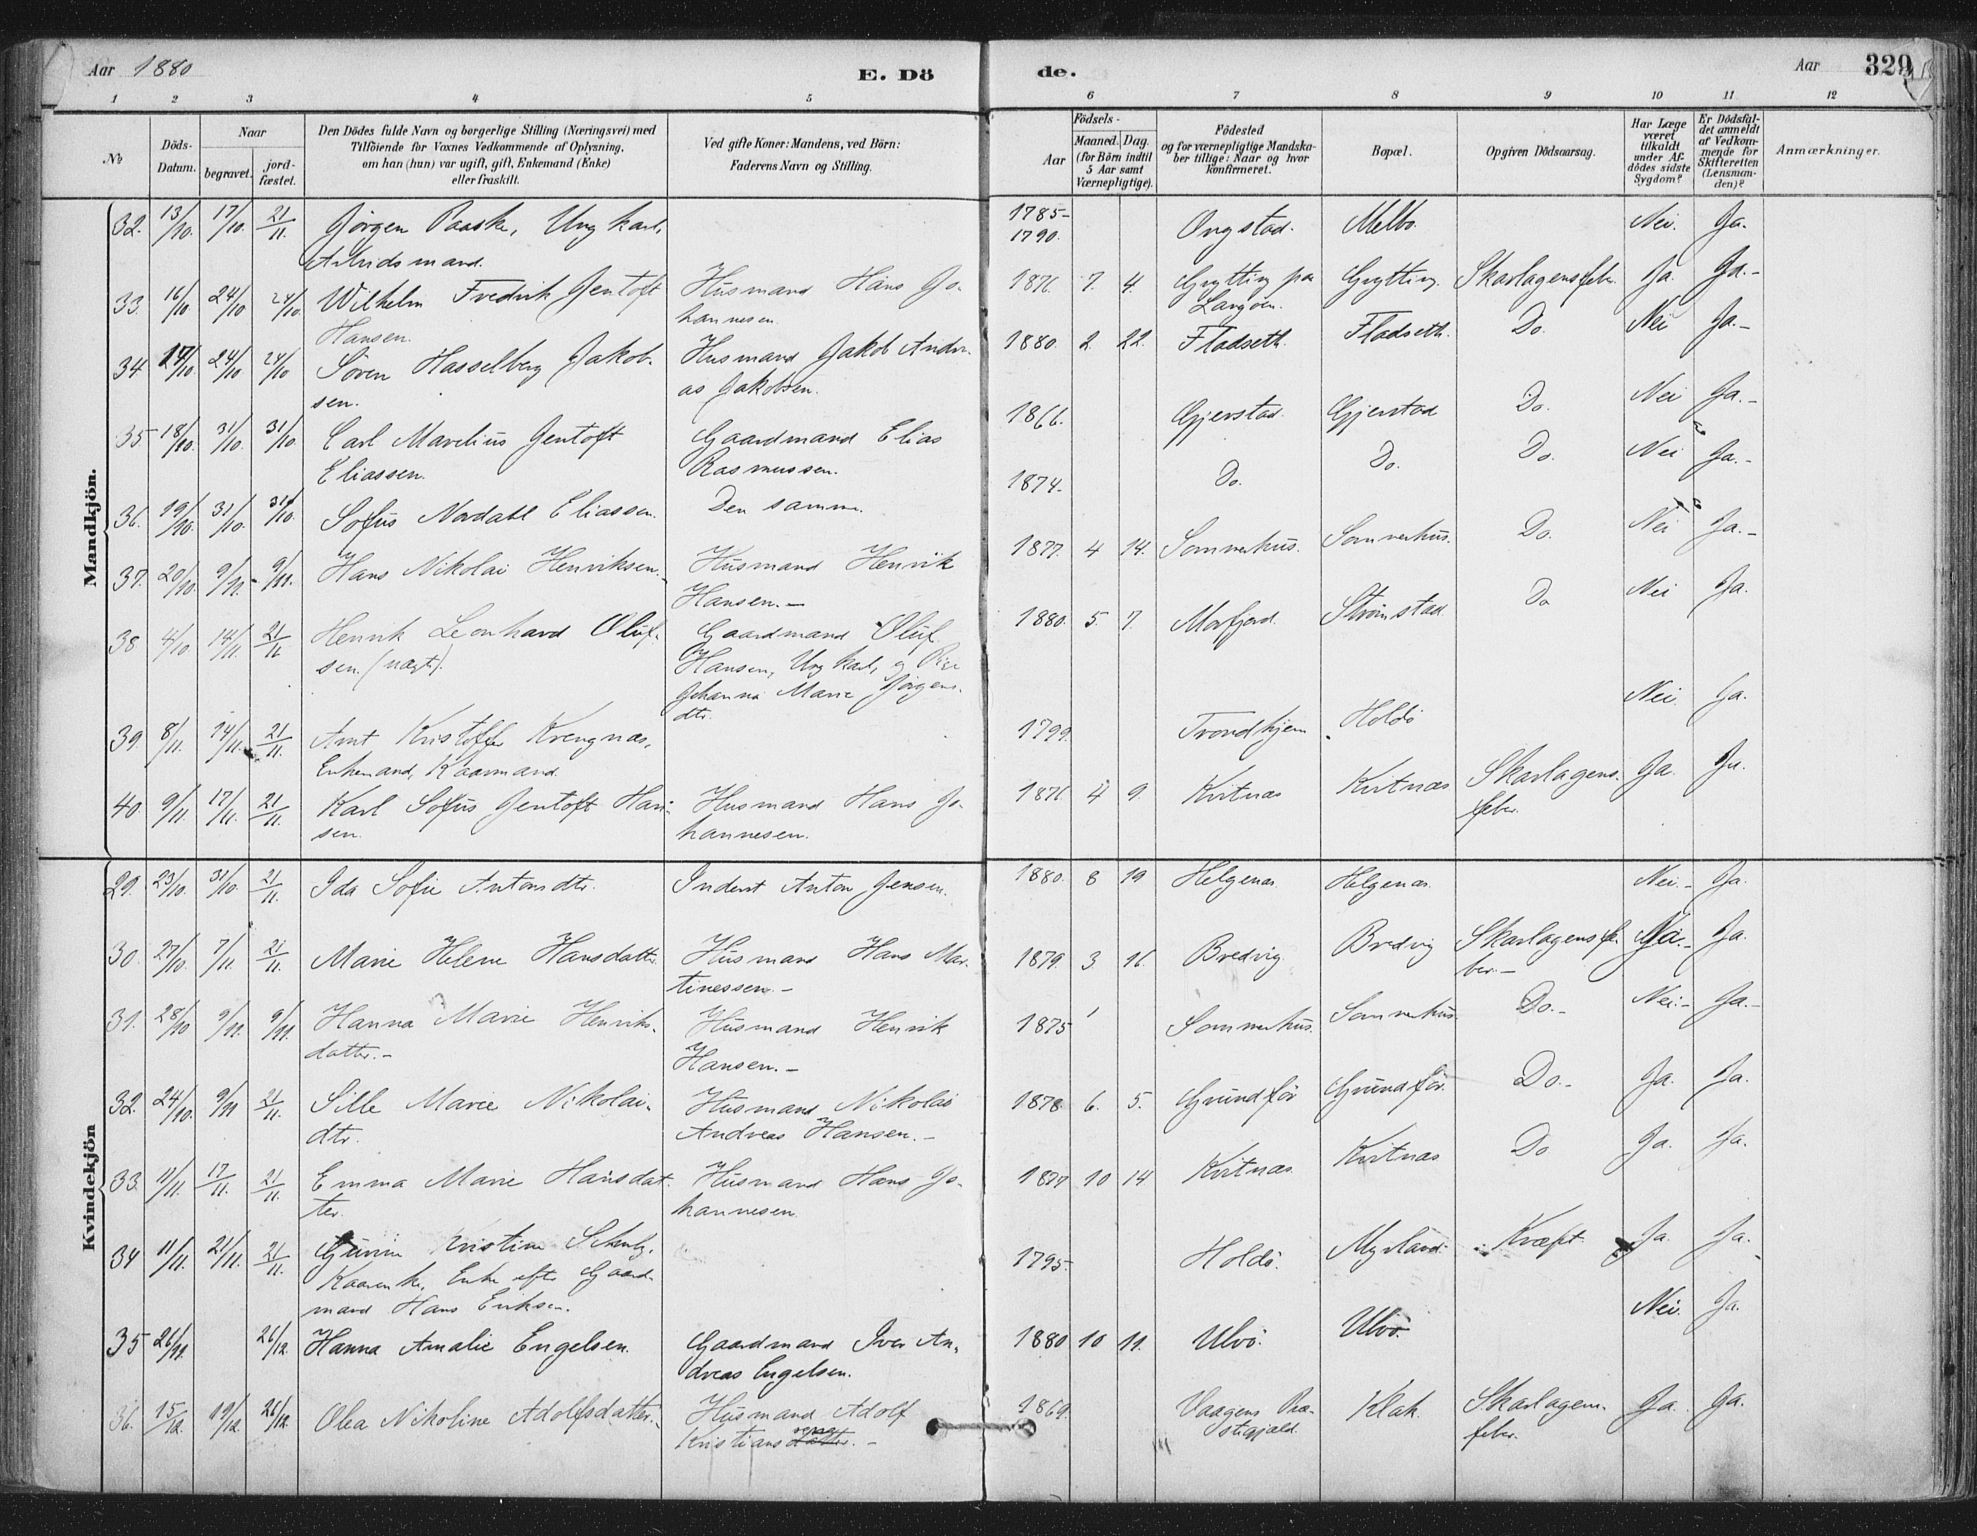 Aar 1880
E. Dö
de.
Aar
329
1 2 3 4 5 6 7 8 9 10 11 12
№
Döds-
Datum.
Naar
begravet.
jord-
fæstet.
Den Dödes fulde Navn og borgerlige Stilling (Næringsvei) med
Tilföiende for Voxnes Vedkommende af Oplysning,
om han (hun) var ugift, gift, Enkemand (Enke)
eller fraskilt.
Ved gifte Koner: Mandens, ved Börn:
Faderens Navn og Stilling.
Födsels-
Aar
Maaned. Dag.
(for Börn indtil
5 Aar samt
Værnepligtige).
Födested
og for værnepligtige Mandska-
ber tillige: Naar og hvor
konfirmeret.
Bopæl.
Opgiven Dödsaarsag.
Har Læge
været
tilkaldt
under Af-
dödes sidste
Sygdom?
Er Dödsfal-
det anmeldt
af Vedkom-
mende for
Skifteretten
(Lensman-
den)?
Anmærkninger.
Mandkjön.
32. 13/10. 17/10. 21/11. Jörgen Paaske, Ungkarl, 1785- Ongstad. Melbo. Nei. Ja.
Arbeidsmand. 1790.
33. 16/10 24/10 24/10. Wilhelm Fredrik Gentoft Husmand Hans Jo- 1876. 7. 4. Grytting paa Grytting. Skarlagensfeber. Ja. Ja.-
Hansen. hannesen. Langöen.
34 17/10. 24/10 24/10 Sören Hasselberg Jakob- Husmand Jakob Andre- 1880. 2. 22. Fladseth. Fladseth. Do. Nei Ja.-
sen. as Jakobsen.
35 18/10. 31/10. 31/10. Carl Marelius Gentoft Gaardmand Elias 1866. Gjerstad Gjerstad Do. Nei Ja.-
Eliassen. Rasmussen.
36. 19/10. 31/10. 31/10. Sofus Nordahl Eliassen. Den samme. 1874. Do. Do. Do. Nei Ja.-
37. 20/10. 9/11.- 9/11. Hans Nikolai Henriksen.- Husmand Henrik 1877. 4 14. Sommerhus. Sommerhus. Do. Nei Ja.-
Hansen.-
38 4/10 14/11. 21/11 Henrik Leonhard Oluf- Gaardmand Oluf 1880. 5. 7. Morfjord. Strömstad Do Nei Ja.
sen. (uægt). Hansen, Ungkarl, og Pige
Johanna Marie Jörgens-
dtr.
39. 8/11. 14/11. 21/11. Arnt Kristoffer Krengnæs, 1799. Trondhjem Holdö Nei. Ja.
Enkemand, Kaarmand.
40. 9/11. 17/11. 21/11. Karl Sofus Gentoft Han- Husmand Hans Jo- 1876. 4 9 Kvitnæs Kvitnæs Skarlagens- Ja. Ja.
sen. hannesen. feber.
Kvindekjön
29. 23/10. 31/10. 21/11. Ida Sofie Antonsdtr. Inderst Anton Jensen. 1880. 8 19 Helgenæs Helgenæs. Nei.- Ja.
30. 27/10. 7/11. 21/11. Marie Helene Hansdatter Husmand Hans Mar- 1879. 3 16. Bredvig. Bredvig Skarlagensfe- Ja.
tinessen.- ber.-
31. 28/10 9/11. 9/11. Hanna Marie Henriks- Husmand Henrik 1875 Sommerhus. Sommerhus Do.- Nei.- Ja.-
datter.- Hansen.-
32. 24/10. 9/11 21/11. Sille Marie Nikolai- Husmand Nikolai 1878 6. 5. Grundför Grundför. Do.- Ja. Ja.
dtr. Andreas Hansen.-
33. 11/11. 17/11. 21/11. Emma Marie Hansdat- Husmand Hans Jo- 1877 10 14 Kvitnæs Kvitnæs Do Ja. Ja.
ter. hannesen.
34 11/11. 21/11. 21/11. Kristine Schulz, 1795. Holdö. Myrland. Kræft Ja. Ja.
Kaarenke, Enke efter Gaard-
mand Hans Eriksen.
35 26/11. 26/12. Hanna Amalie Engelsen. Gaardmand Iver An- 1880 10 11. Ulvö. Ulvö. Nei. Ja.
dreas Engelsen.
36. 15/12. 19/12. 26/12. Olea Nikoline Adolfsdatter.- Husmand Adolf 1869. Vaagens Præ- Klak. Skarlagens- Ja. Ja.
Kristians sens datter.- stegjæld. feber.